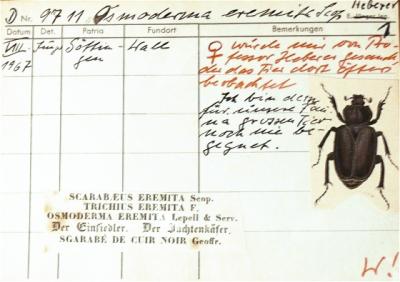 D Nr. 9711 Osmoderma eremita Scop. Heberer
Datum Det. Patria Fundort Bemerkungen 1
VIII. Göttingen Wall ♀ würde mir von Professor Heberer
1967 das Tier dort öfters
beobachtet
Ich bin dem
für unsere Fauna grossen Tier
noch nie begegnet.
SCARABÆUS EREMITA Scop.
TRICHIUS EREMITA F.
OSMODERMA EREMITA Lepell & Serv.
Der Einsiedler. Der Juchtenkäfer.
SGARABÉ DE CUIR NOIR Geoffr.
W!